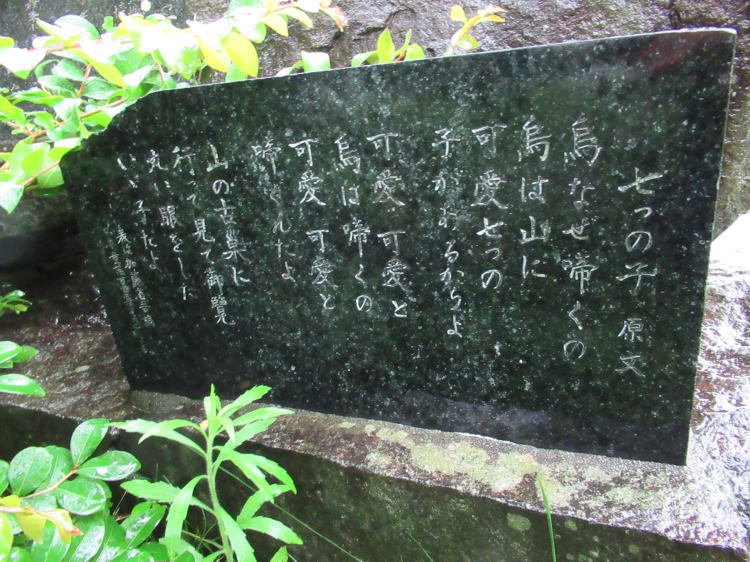 七つの子 原文
烏なぜ啼くの
烏は山に
可愛七つの
子があるからよ
可愛 可愛と
烏は啼くの
可愛 可愛と
啼くんだよ
山の古巣に
行って見て御覧
丸い眼をした
いゝ子だよ